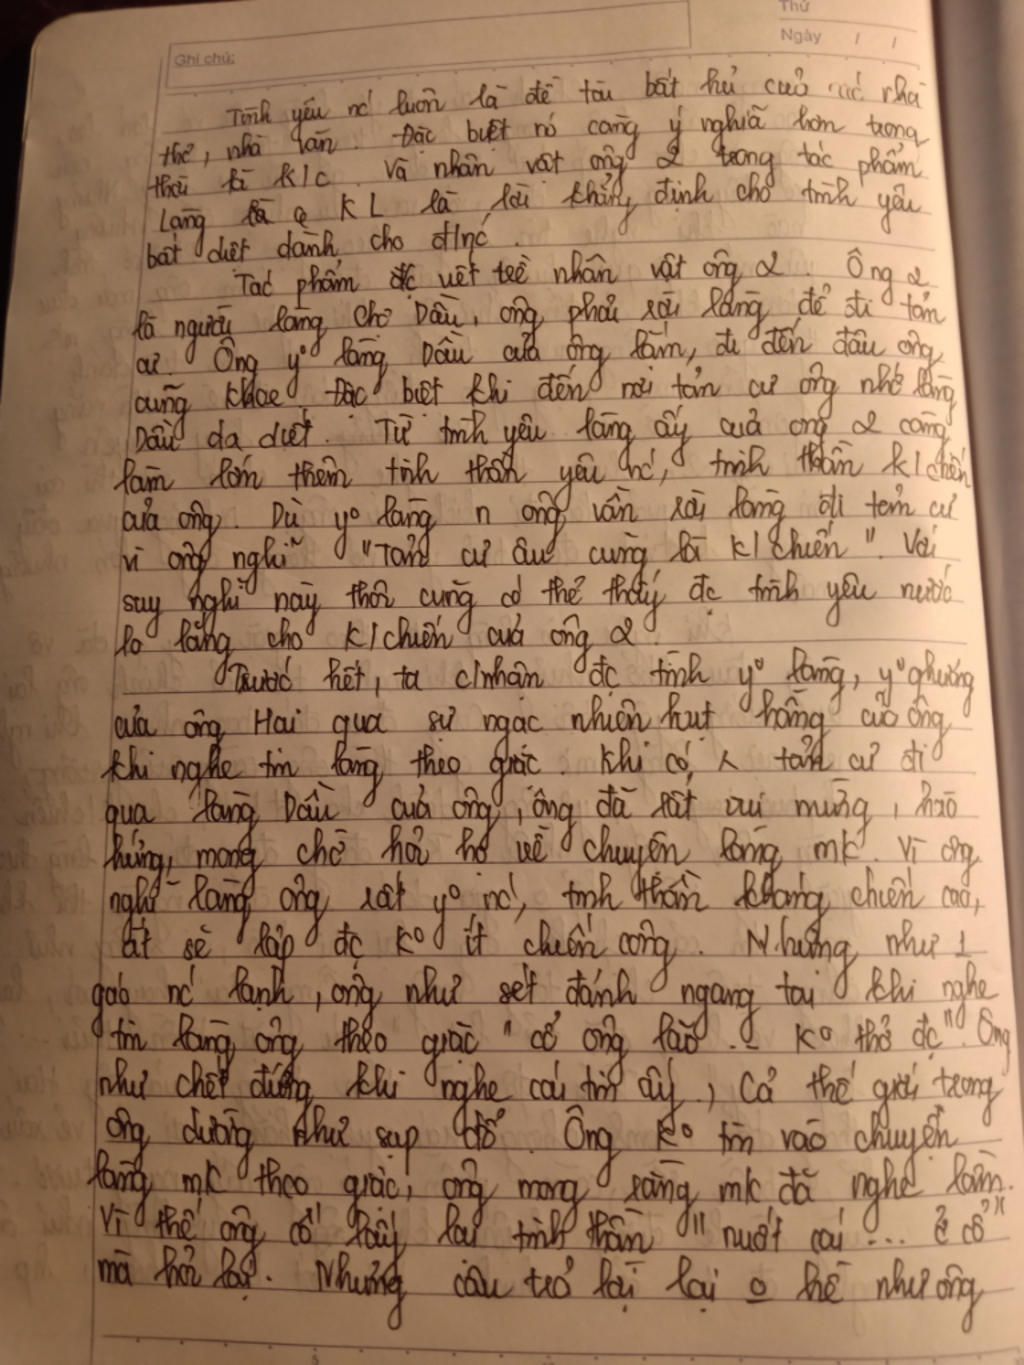 Thứ
Ngày / /
Ghi chú:
Tình yêu nc luôn là đề tài bất hủ của các nhà
thơ, nhà văn. Đặc biệt nó càng ý nghĩa hơn trong
thời kì k/c. Và nhân vật ông 2 trong tác phẩm
Làng là của KL là lời khẳng định cho tình yêu
bất diệt dành cho đ/nc.
Tác phẩm đc viết về nhân vật ông 2. Ông 2
là người làng chợ Dầu, ông phải rời làng để đi tản
cư. Ông yº làng Dầu của ông lắm, đi đến đâu ông
cũng khoe. Đặc biệt khi đến nơi tản cư ông nhớ làng
Dầu da diết. Từ tình yêu làng ấy của ông 2 càng
làm lớn thêm tinh thần yêu nc, tinh thần k/chiến
của ông. Dù yº làng n ông vẫn rời làng đi tản cư
vì ông nghĩ "Tản cư âu cũng là k/chiến". Với
suy nghĩ này thôi cũng có thể thấy đc tình yêu nước
lo lắng cho k/chiến của ông 2.
Trước hết, ta c/nhận đc tình yº làng, yº
của ông Hai qua sự ngạc nhiên hụt hẫng của ông
khi nghe tin làng theo giặc. Khi có tản cư đi
qua làng Dầu của ông, ông đã rất vui mừng, háo
hứng, mong chờ hỏi họ về chuyện làng mk. Vì ông
nghĩ làng ông rất yº nc, tinh thần kháng chiến cao,
ắt sẽ lập đc kº ít chiến công. Nhưng như 1
gáo nc lạnh, ông như sét đánh ngang tai khi nghe
tin làng ông theo giặc "cổ ông lão ... kº thở đc". Ông
như chết đứng khi nghe cái tin ấy, Cả thế giới trong
ông dường như sụp đổ. Ông kº tin vào chuyện
làng mk theo giặc, ông mong rằng mk đã nghe lầm.
Vì thế ông cố lấy lại tinh thần "nuốt cái ... ở cổ"
mà hỏi lại. Nhưng câu trả lời lại o hề như ông